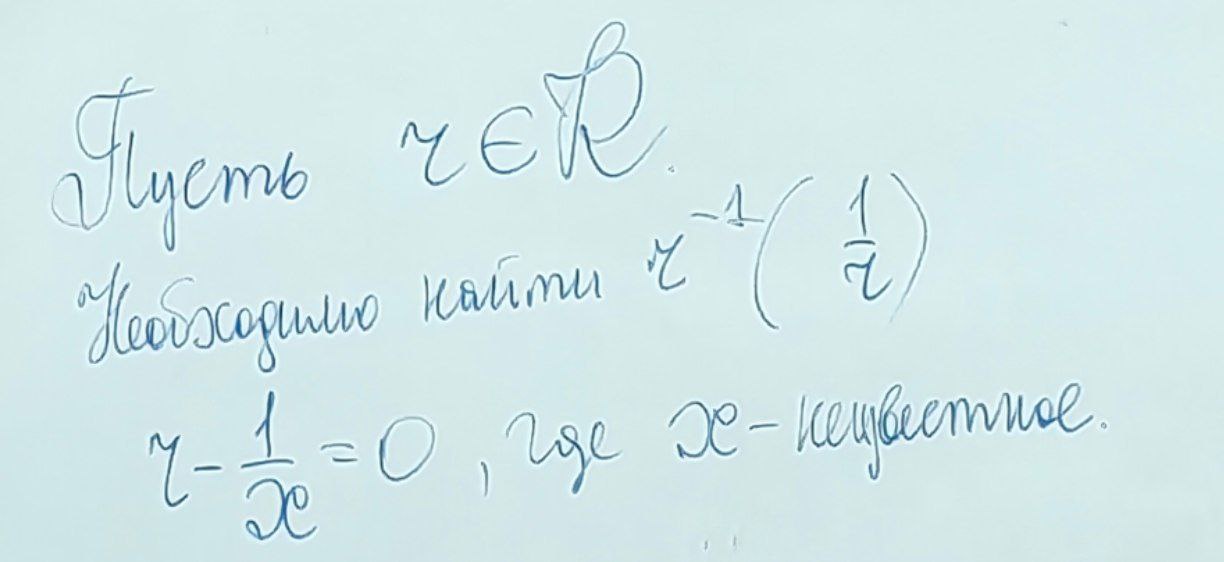 Пусть r ∈ R.
Необходимо найти r⁻¹(1/r)
r - 1/x = 0, где x - неизвестное.